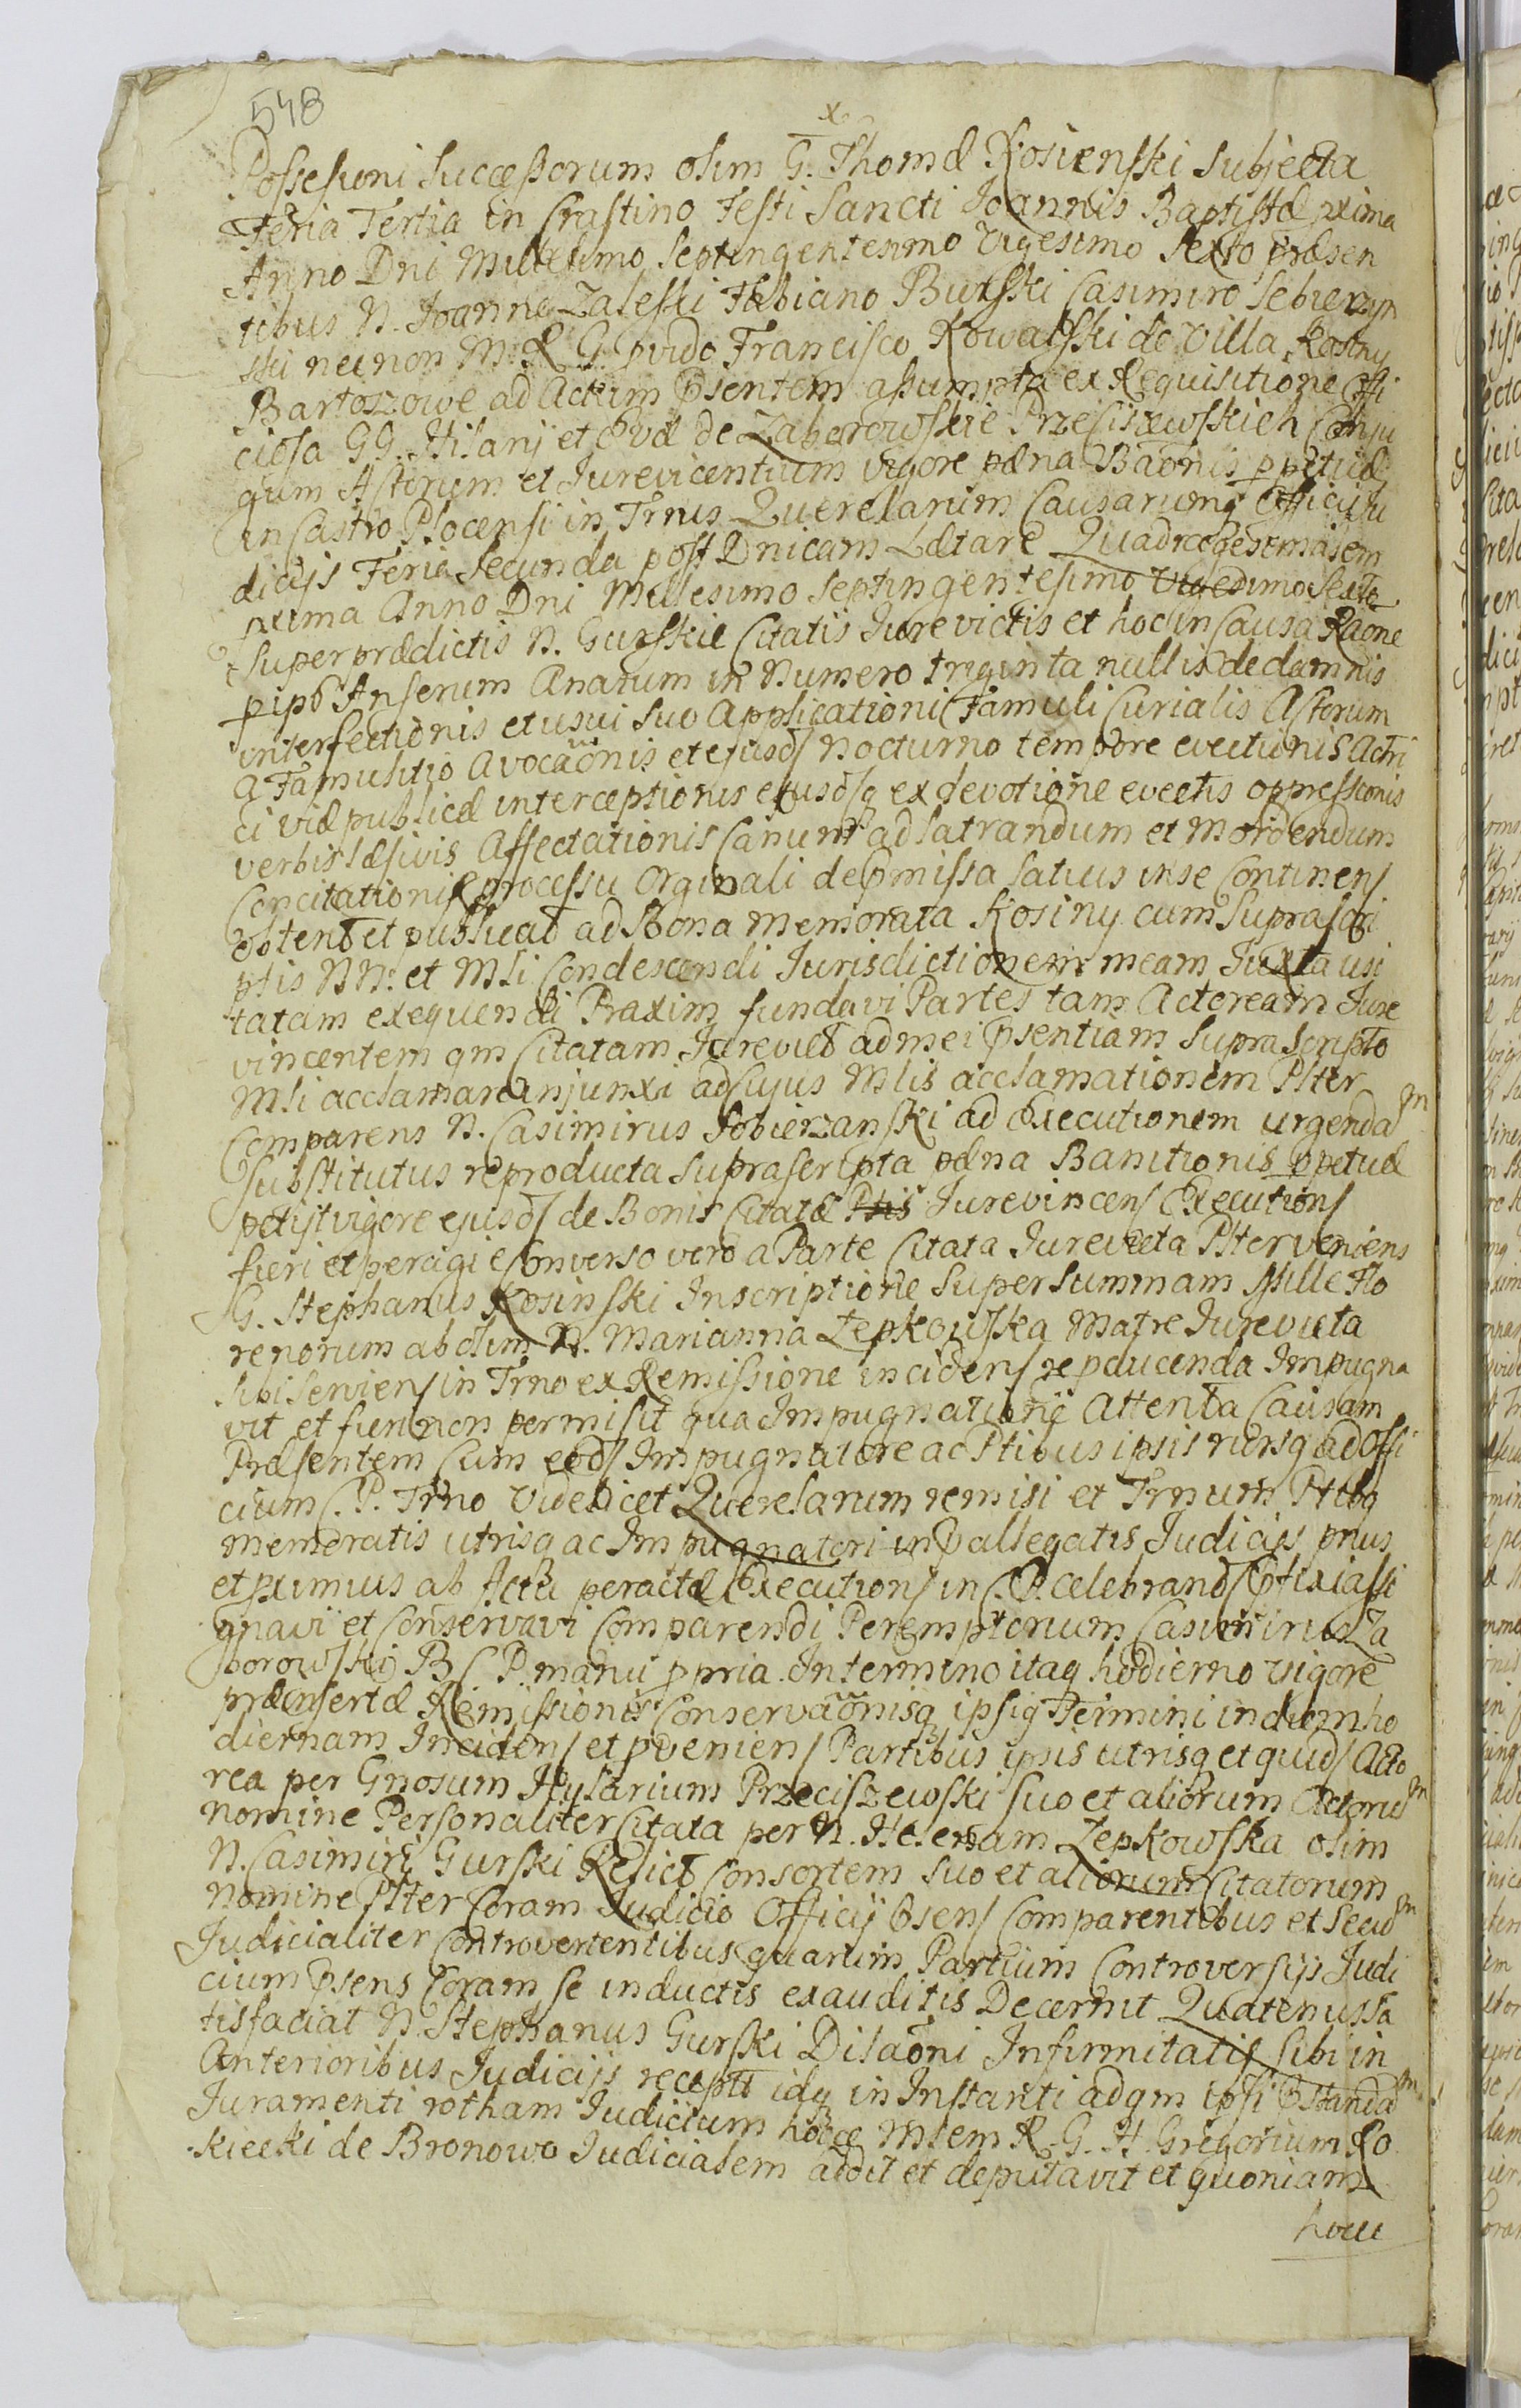 548
x
Possesioni Successorum olim G. Thomæ Kosienski Subjecta
Feria Tertia in Crastino Festi Sancti Joannis Baptistæ pxima
Anno Dni Millesimo Septingentesimo Vigesimo Sexto præsen
tibus N. Joanne Zaleski Fabiano Burski Casimiro Sebierzyn
ski necnon M. R. G. pvido Francisco Kowalski de Villa Kosiny
Bartoszowe ad Actum psentem assumpta ex Requisitione Offi
ciosa GG. Hilarij et Evæ de Zaborowskie Przeciszewskich Conju
gum Actorum et Jurevicentium vigore pæna Baonis ppetuæ
in Castro Plocensi in Trnis Querelarum Causarumq Officij Ju
dicijs Feria Secunda post Dnicam Lætare Quadragesimalem
pxima Anno Dni Millesimo Septingentesimo Vigesimo Sexto
Super prædictis N. Gurskie Citatis Jure victis et hoc in Causa Raone
pipo Anserum Anatum in Numero triginta nullis de damnis
interfectionis et usui suo Applicationi Famuli Curialis Actorum
a Famulitio Avocaonis et ejusd nocturno tempore evectionis Actri
ci viæ publicæ interceptionis ejusdq ex devotione evectis oppressionis
verbis læsivis Affectationis Canum ad latrandum et mordendum
Concitationis processu Orginali de pmissa latius in se Continen
obtent et publicat ad Bona memorata Kosiny cum Suprascri
ptis NN. et Mli Condescendi Jurisdictionem meam Juxta usi
tatam exequendi Praxim fundavi Partes tam Actoream Jure
vincentem qm Citatam Jurevict ad mei psentiam Supra Scripto
Mli acclamare injunxi ad Cujus Mlis acclamationem Plter
Comparens N. Casimirus Sobierzanski ad Executionem urgendam
Substitutus reproducta Suprascripta pæna Banitionis ppetuæ
petijt vigore ejusd de Bonis Citatæ Ptis Jurevincen Execution
fieri et peragi e Converso vero a Parte Citata Jurevicta Plter veniens
G. Stephanus Kosinski Inscriptione Super Summam Mille Flo
renorum ab olim N. Marianna Zepkowska Matre Jurevicta
sibi servien in Trno ex Remissione inciden repducenda Impugna
vit et fieri non permisit qua Impugnatione Attenta Causam
Præsentem Cum eod Impugnatore ac Ptibus ipsis rursq ad Offi
cium C. P. Trno Videlicet Querelarum remisi et Trnum Ptibq
memoratis utrisq ac Impugnatori in pallegatis Judicijs prius
et pximius ab Actu peractæ Execution in C. P. celebrand pfixi assi
gnavi et Conservavi Comparendi Peremptorium Casimirus Za
borowski B C P. manu ppria. In termino itaq hodierno vigore
præinsertæ Remissionis Conservaonisq ipsiq Termini in diem ho
diernam Inciden et pvenien Partibus ipsis utrisq et quid Acto
rea per Gnosum Hylarium Przeciszewski suo et aliorum Actorum
nomine Personaliter Citata per N. Helenam Zepkowska olim
N. Casimiri Gurski Relict Consortem suo et aliorum Citatorum
Nomine Plter Coram Judicio Officij psen Comparentibus et Secum
Judicialiter Controvertentibus quarum Partium Controversijs Judi
cium psens Coram se inductis exauditis Decernit Quatenus Sa
tisfaciat N. Stephanus Gurski Dilaoni Infirmitatis Sibi in
Anterioribus Judicijs recept idq in Instanti ad qm ipsi pstandam
Juramenti rotham Judicium hocce Mlem R. G. H. Gregorium Ro
kicki de Bronowo Judicialem addit et deputavit et quoniam
hocce